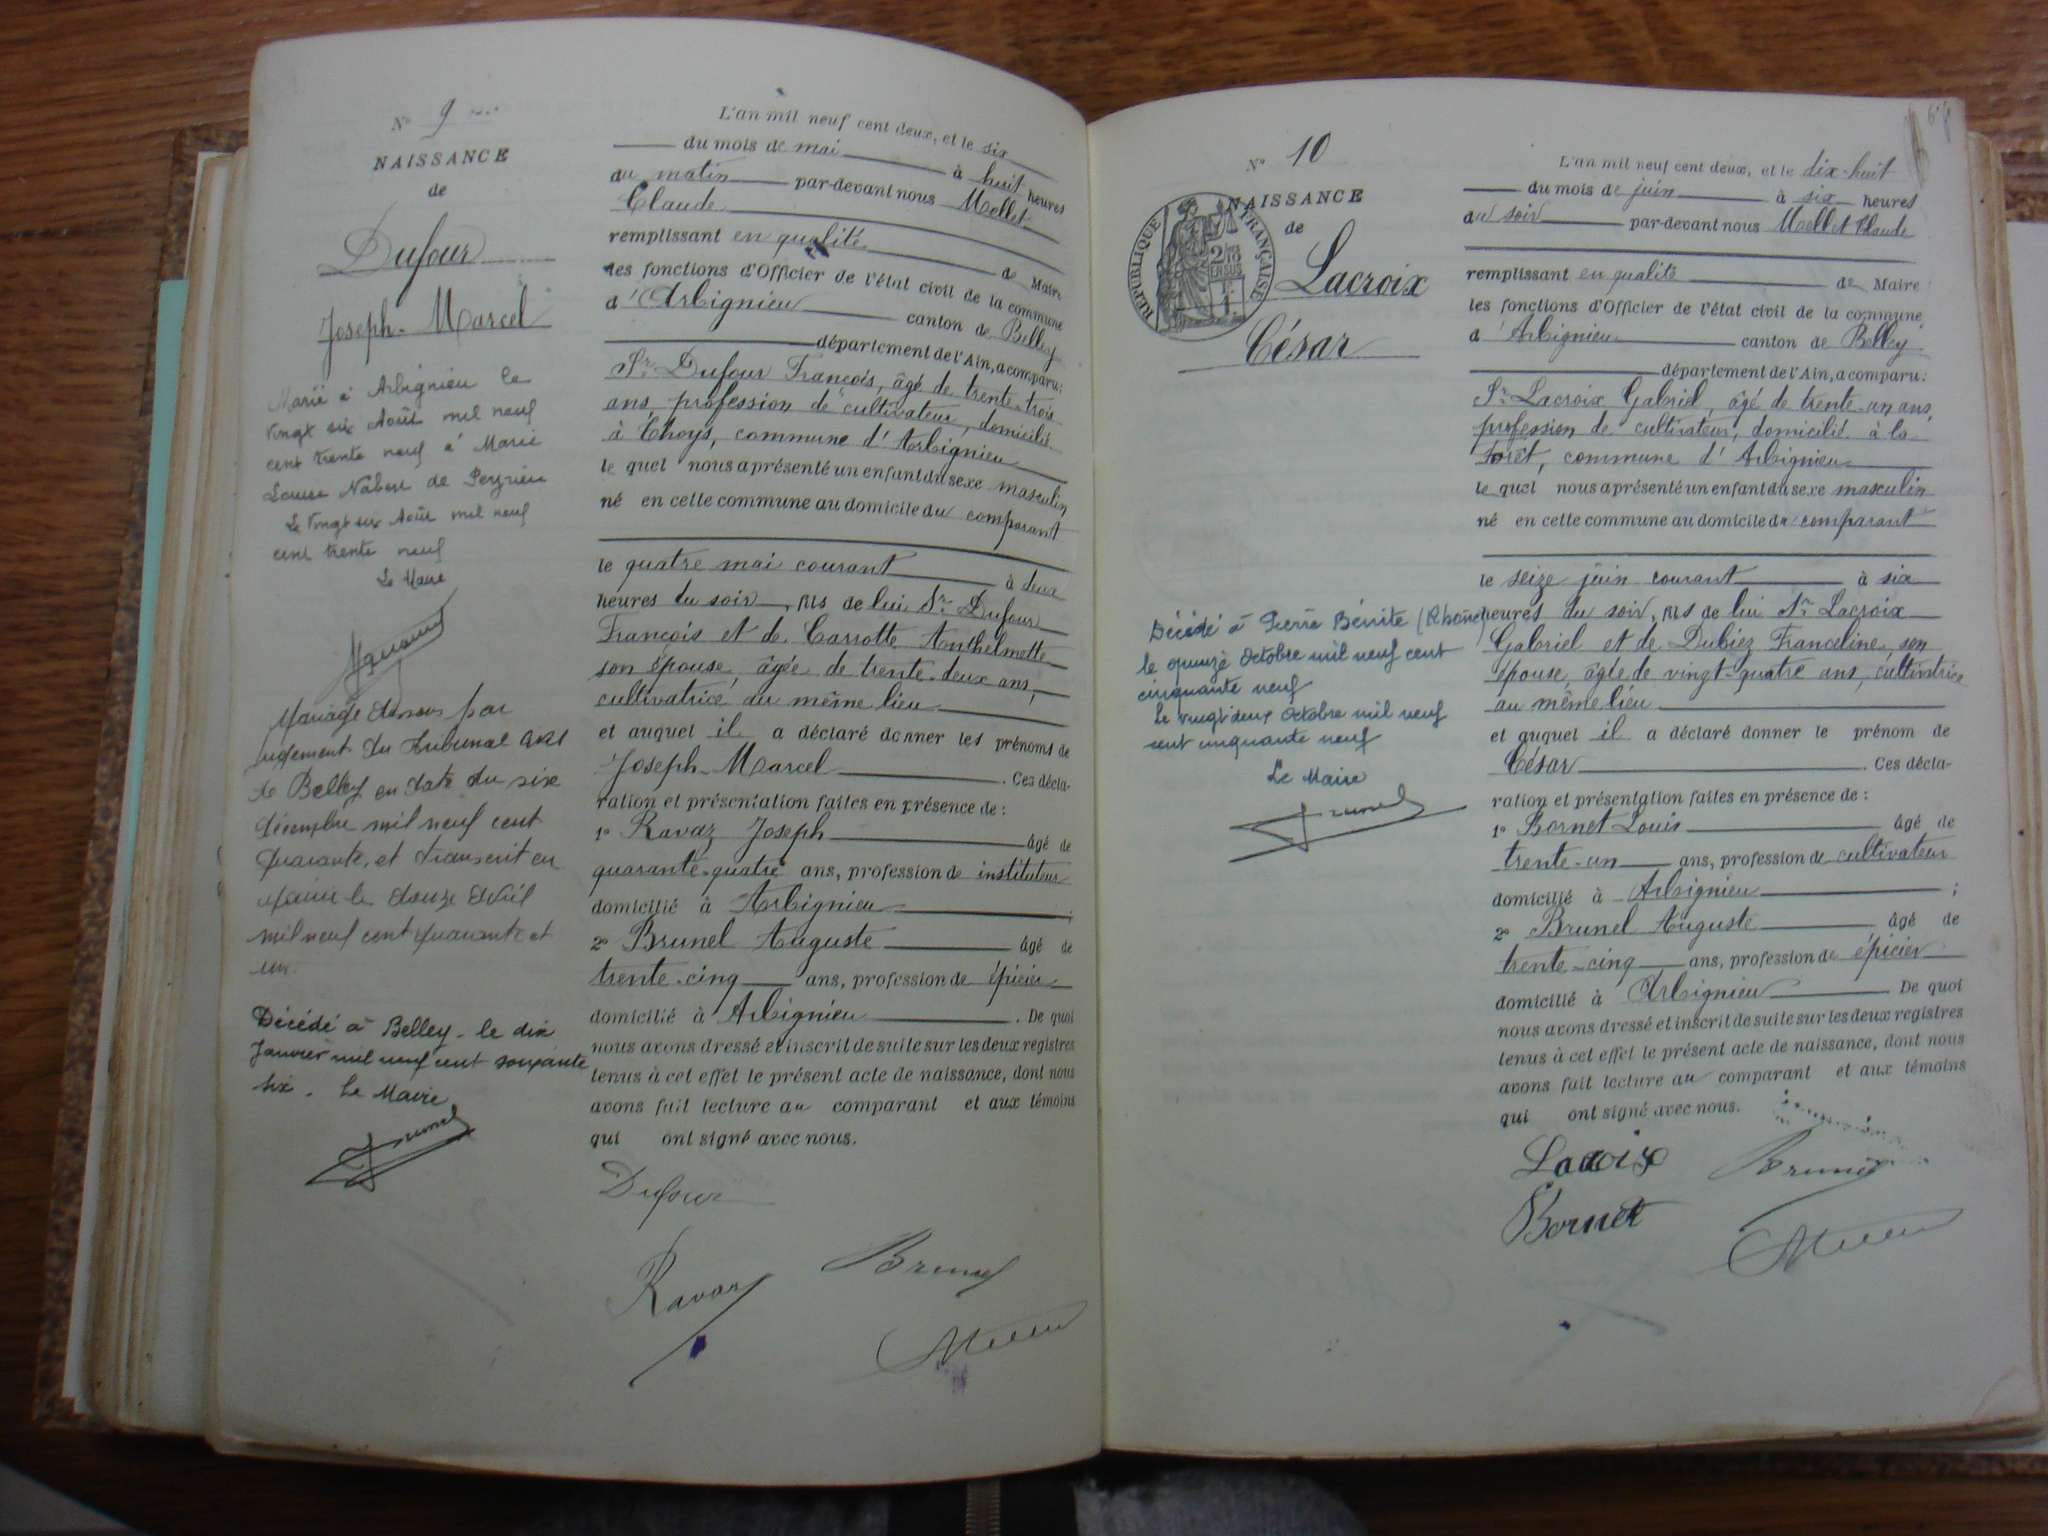 N° 9
NAISSANCE
de
Dufour
Joseph-Marcel
Marié à Arbignieu le
vingt six Août mil neuf
cent trente neuf à Marie
Louise de Peyrieu
Le vingt six Août mil neuf
cent trente neuf
Le Maire
Mariage dissous par
jugement du tribunal civil
de Belley en date du six
décembre mil neuf cent
quarante, et transcrit en
mairie le douze Avril
mil neuf cent quarante et
un.
Décédé à Belley - le dix
Janvier mil neuf cent soixante
six. Le Maire
Brunel
L'an mil neuf cent deux, et le six
du mois de mai à huit heures
du matin par-devant nous Mollet
Claude
remplissant en qualité de Maire
les fonctions d'Officier de l'état civil de la commune
d'Arbignieu canton de Belley
département de l'Ain, a comparu:
Sr. Dufour François, âgé de trente-trois
ans, profession de cultivateur, domicilié
à Thoys, commune d'Arbignieu
le quel nous a présenté un enfant du sexe masculin
né en cette commune au domicile du comparant
le quatre mai courant à deux
heures du soir, fils de lui Sr. Dufour
François et de Carrotte Anthelmette
son épouse, âgée de trente-deux ans,
cultivatrice du même lieu
et auquel il a déclaré donner les prénoms de
Joseph-Marcel. Ces décla-
ration et présentation faites en présence de:
1° Ravaz Joseph âgé de
quarante-quatre ans, profession de instituteur
domicilié à Arbignieu;
2° Brunel Auguste âgé de
trente-cinq ans, profession de épicier
domicilié à Arbignieu. De quoi
nous avons dressé et inscrit de suite sur les deux registres
tenus à cet effet le présent acte de naissance, dont nous
avons fait lecture au comparant et aux témoins
qui ont signé avec nous.
Dufour
Ravaz Brunel
N° 10
NAISSANCE
de
RÉPUBLIQUE FRANÇAISE
Lacroix
César
Décédé à Pierre Bénite (Rhône)
le quinze Octobre mil neuf cent
cinquante neuf
Le vingt deux Octobre mil neuf
cent cinquante neuf
Le Maire
Brunel
L'an mil neuf cent deux, et le dix-huit
du mois de juin à six heures
du soir par-devant nous Mollet Claude
remplissant en qualité de Maire
les fonctions d'Officier de l'état civil de la commune
d'Arbignieu canton de Belley
département de l'Ain, a comparu:
Sr. Lacroix Gabriel, âgé de trente-un ans,
profession de cultivateur, domicilié à la
Forêt, commune d'Arbignieu
le quel nous a présenté un enfant du sexe masculin
né en cette commune au domicile du comparant
le seize juin courant à six
heures du soir, fils de lui Sr. Lacroix
Gabriel et de Dubiez Franceline, son
épouse, âgée de vingt-quatre ans, cultivatrice
au même lieu
et auquel il a déclaré donner le prénom de
César. Ces décla-
ration et présentation faites en présence de:
1° Bornet Louis âgé de
trente-un ans, profession de cultivateur
domicilié à Arbignieu;
2° Brunel Auguste âgé de
trente-cinq ans, profession de épicier
domicilié à Arbignieu. De quoi
nous avons dressé et inscrit de suite sur les deux registres
tenus à cet effet le présent acte de naissance, dont nous
avons fait lecture au comparant et aux témoins
qui ont signé avec nous.
Lacroix Brunel
Bornet